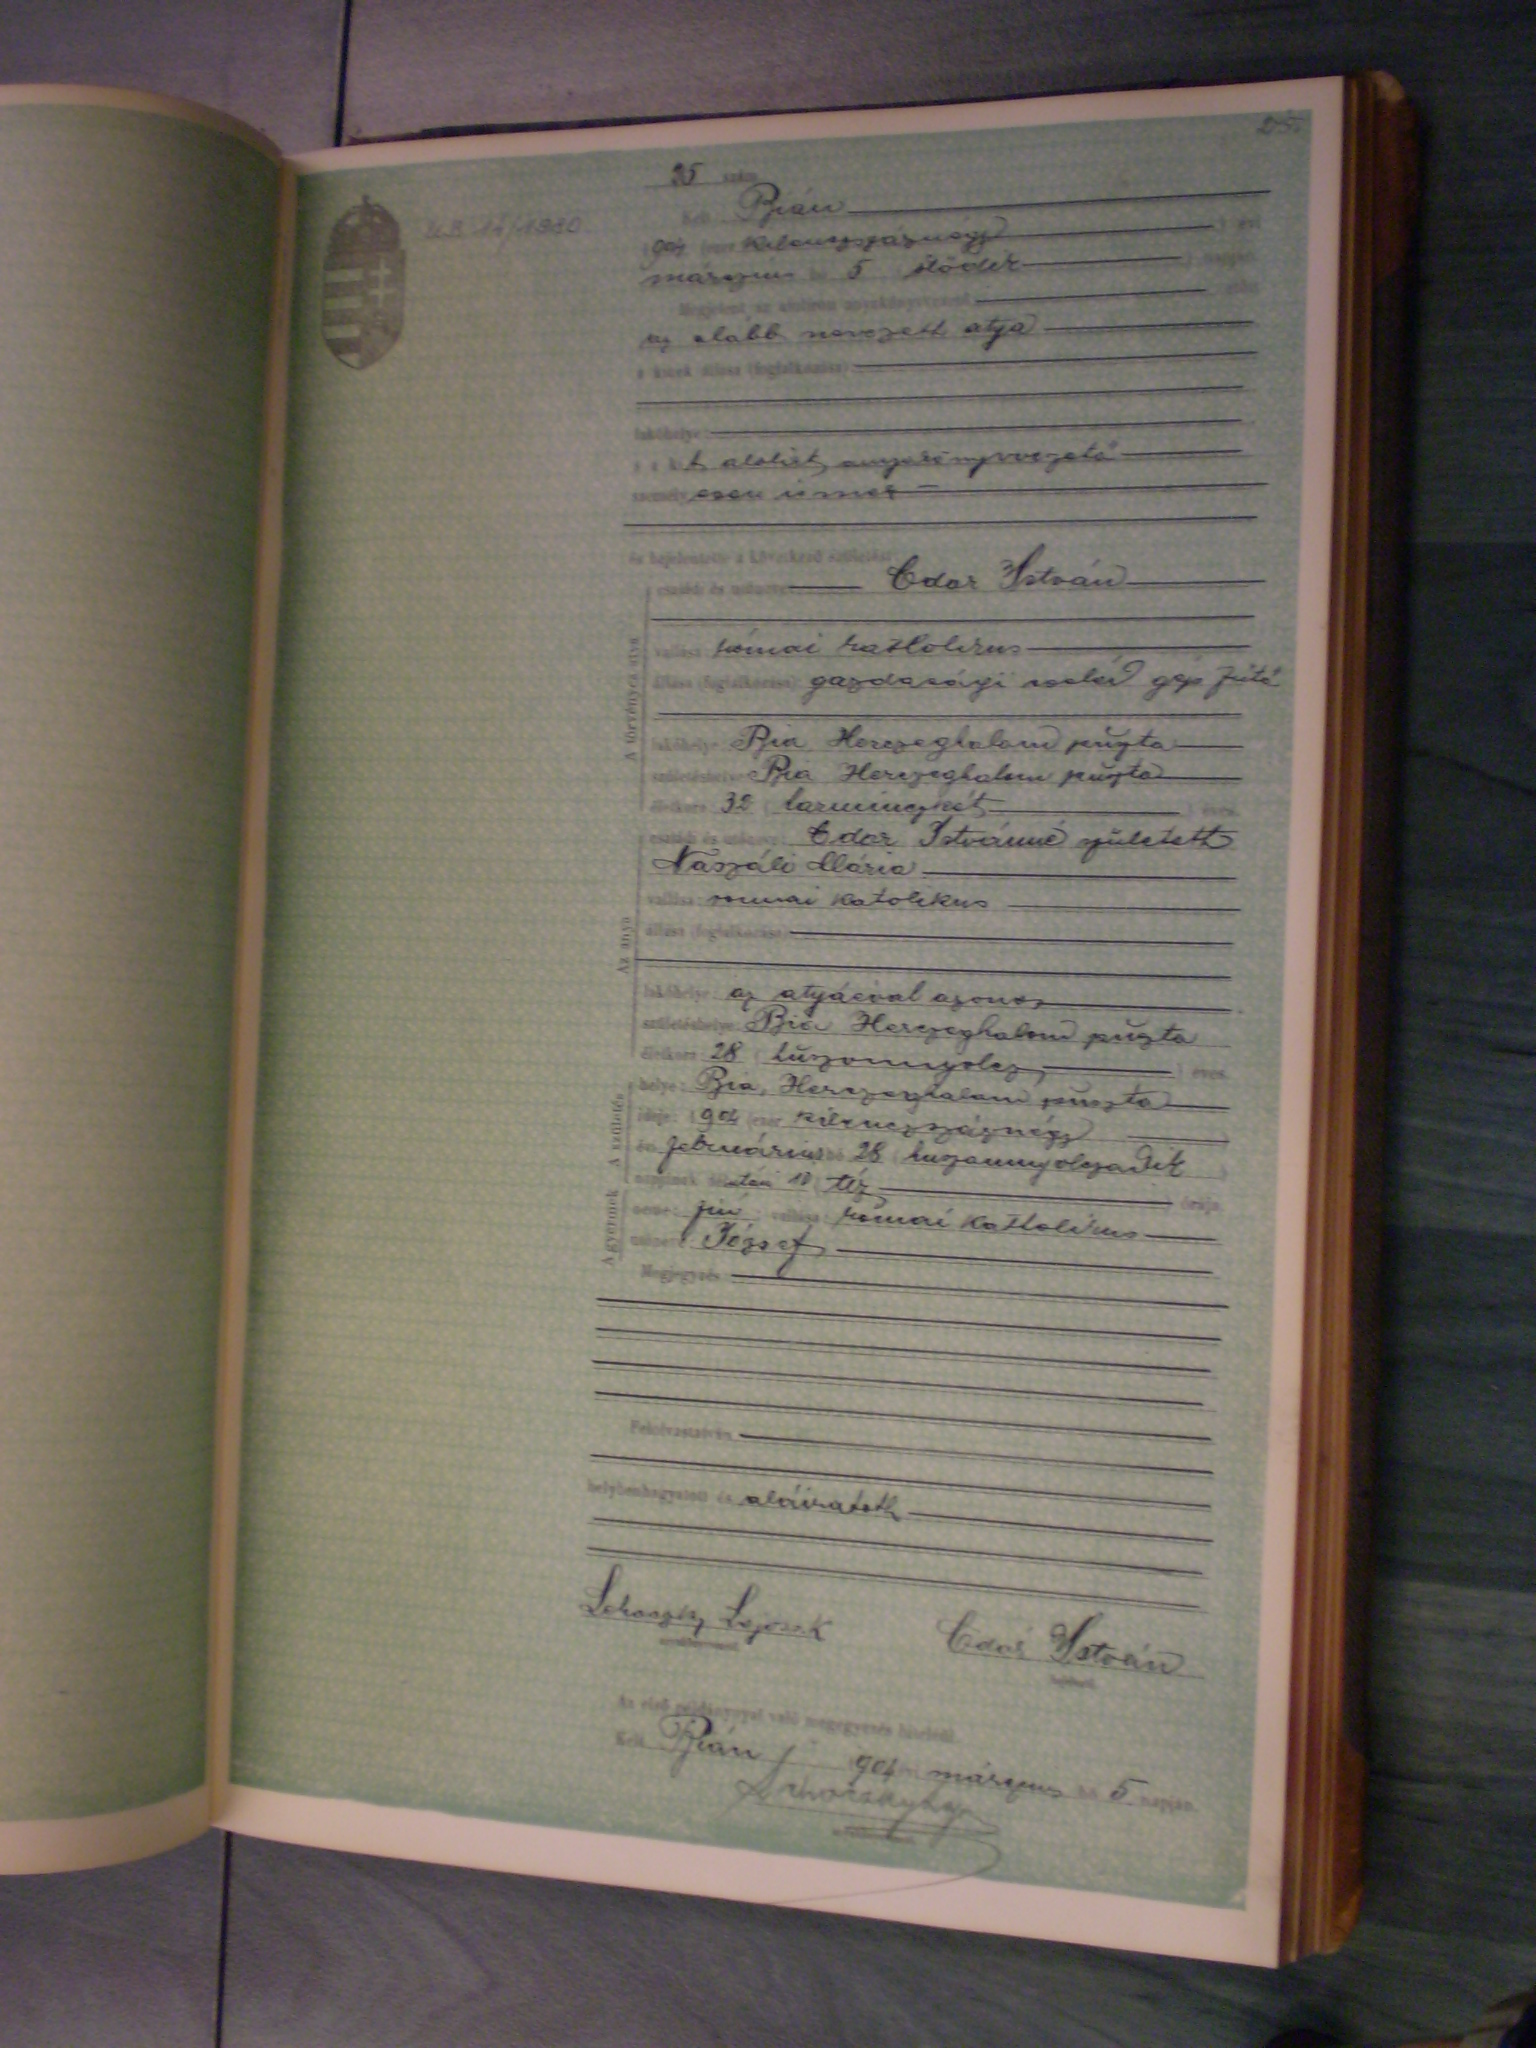 25
25 szám
Kelt Bián
1904 (ezer kilenczszáznégy) évi
márczius hó 5 (ötödik) napján.
Megjelent az alulírott anyakönyvvezető előtt
az alább nevezett atya
a kinek állása (foglalkozása)
lakóhelye
a kit alolirt anyakönyvvezető
személyesen ismer
és bejelentette a következő születést:
A törvényes atya
családi és utóneve: Edar István
vallása: római katholikus
állása (foglalkozása): gazdasági cseléd gép fűtő
lakóhelye: Bia Herczeghalom puszta
születéshelye: Bia Herczeghalom puszta
életkora: 32 (harminczkét) éves.
Az anya
családi és utóneve: Edar Istvánné született
Naszáli Mária
vallása: romai katolikus
állása (foglalkozása):
lakóhelye: az atyáéval azonos,
születéshelye: Bia Herczeghalom puszta
életkora: 28 (huszonnyolcz,) éves.
A születés
helye: Bia, Herczeghalom puszta
ideje: 1904 (ezer kilenczszáznégy)
évi februárius hó 28 (huszonnyolczadik)
napjának délutáni 10 (tíz) órája.
A gyermek
neme: fiú; vallása: római katholikus
utóneve: József,
Megjegyzés
Felolvastatván,
helybenhagyatott és aláiratott
Edar István
bejelentő.
anyakönyvvezető.
Az első példánynyal való megegyezés hiteléül.
Kelt Bián, 1904 évi márczius hó 5 napján.